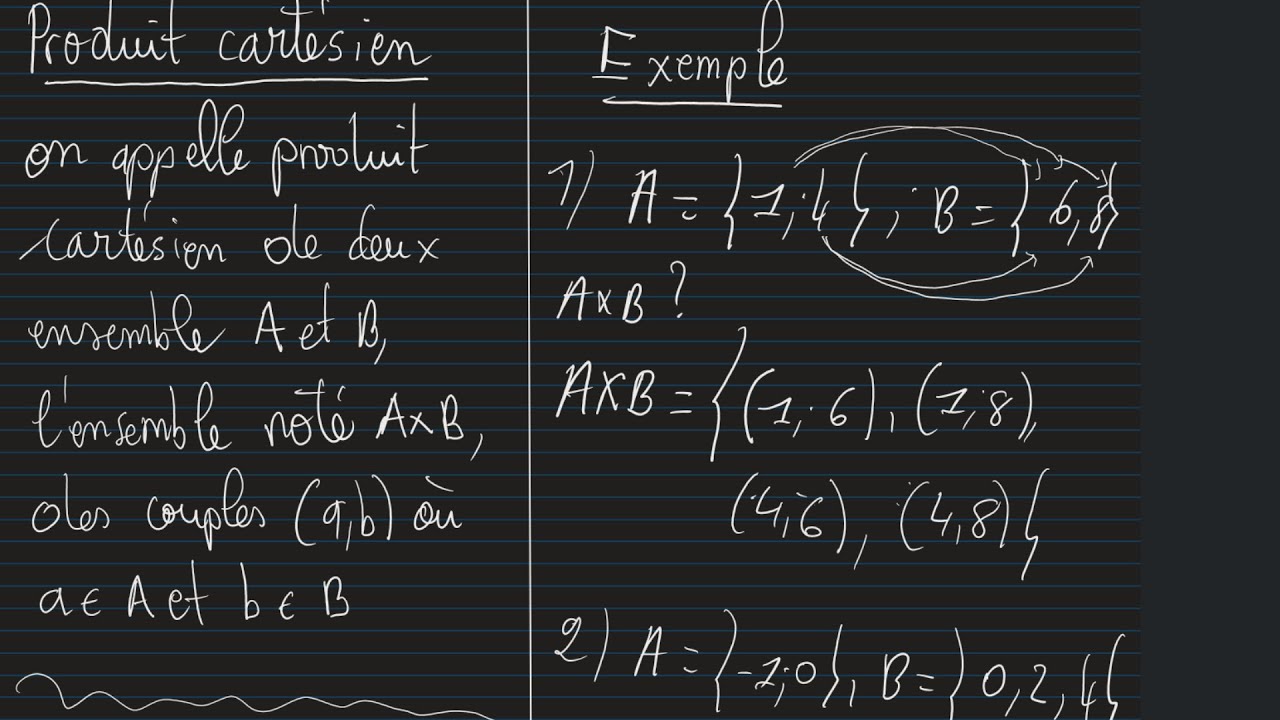 Produit cartésien
on appelle produit
cartésien de deux
ensemble A et B,
l'ensemble noté A×B,
des couples (a,b) où
a ∈ A et b ∈ B
Exemple
1) A = {1; 4} ; B = {6, 8}
A×B ?
A×B = {(1; 6), (1; 8),
(4, 6), (4, 8)}
2) A = {-1; 0}, B = {0, 2, 4}